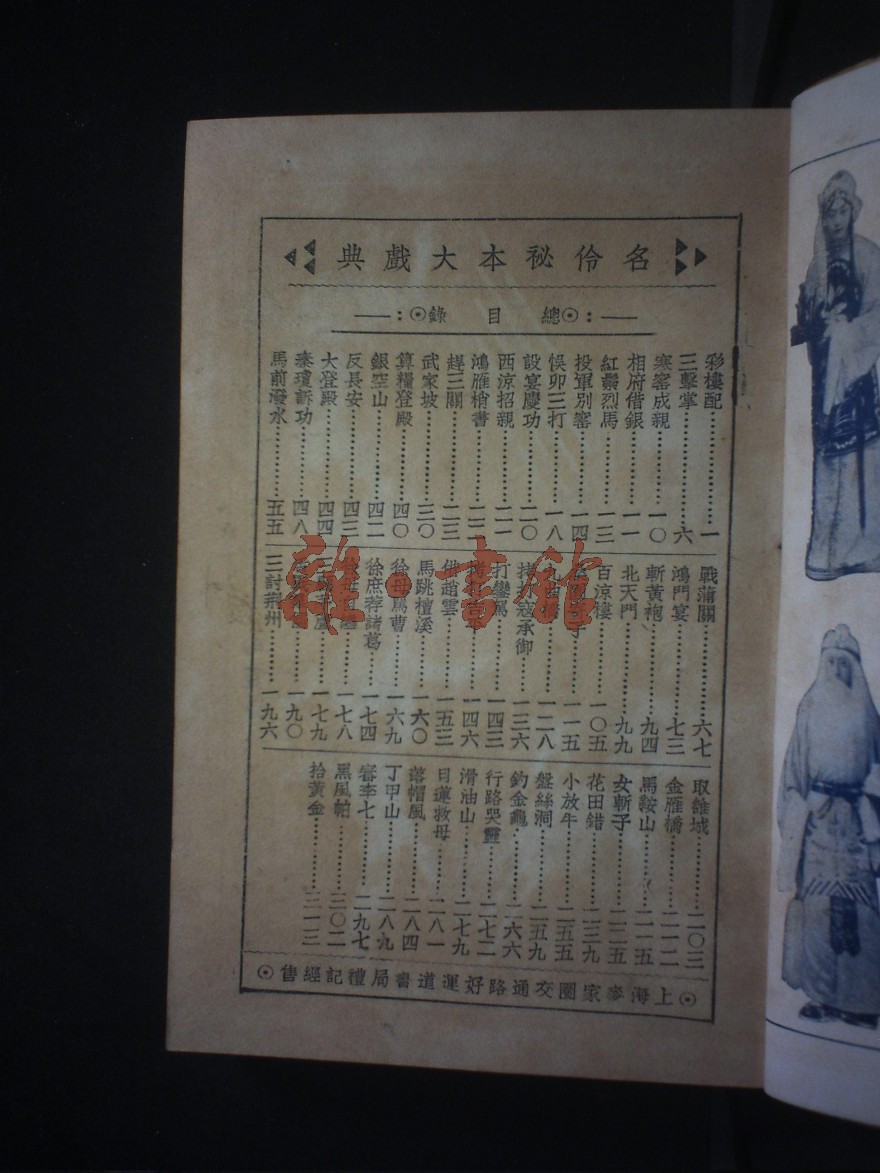 名伶祕本大戲典
總目錄
彩樓配 一
三擊掌 六
寒窰成親 一〇
相府借銀 一一
紅鬃烈馬 一三
投軍別窰 一四
悞卯三打 一八
設宴慶功 二〇
西涼招親 二一
鴻雁梢書 二二
趕三關 二三
武家坡 三〇
算糧登殿 四〇
銀空山 四二
反長安 四三
大登殿 四四
秦瓊訴功 四八
馬前潑水 五五
戰蒲關 六七
鴻門宴 七三
斬黃袍 九四
北天門 九九
百涼樓 一〇五
一一五
一二八
拷打寇承御 一三六
打鑾駕 一四三
一四六
借趙雲 一五三
馬跳檀溪 一六〇
徐母罵曹 一六九
徐庶荐諸葛 一七四
一七八
一七九
一九〇
三討荆州 一九六
取雒城 二〇三
金雁橋 二一二
馬鞍山 二一五
女斬子 二二五
花田錯 二三九
小放牛 二五五
盤絲洞 二五九
釣金龜 二六六
行路哭靈 二七二
滑油山 二七九
目蓮救母 二八一
落帽風 二八四
丁甲山 二八九
審李七 二九七
黑風帕 三〇二
拾黃金 三一三
上海麥家圈交通路好運道書局禮記經售
雜·書館